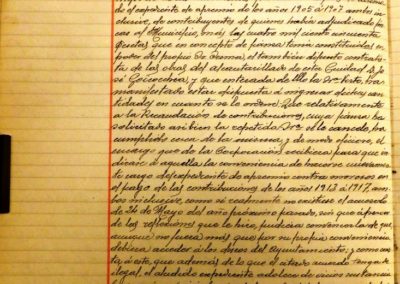 de expediente de apremio de los años 1905 a 1907 ambos in-
clusive, de contribuyentes de quienes había adjudicado fin-
cas al Municipio, más las cuatro mil ciento cincuenta
pesetas que en concepto de fianza tenía constituidas en
poder del propio Sr. el también difunto contratis-
ta de las obras del alcantarillado de esta Ciudad D. Jo-
sé Goicoechea; y que enterada de ello la Sra. ha
manifestado estar dispuesta á ingresar dichas can-
tidades en cuanto se lo ordene. Que relativamente
a la Recaudación de contribuciones, cuya fianza ha
solicitado también la repetida Sra. se le cancele, ha
cumplido cerca de la misma, y de modo, el
encargo que de la Corporación recibiera para que in-
dicase á aquella la conveniencia de hacerse nuevamen-
te cargo del expediente de apremio contra morosos en
el pago de las contribuciones de los años 1913 á 1917, am-
bos inclusive, como si realmente no existiese el acuerdo
de 24 de Mayo del año próximo pasado, sin que á pesar
de las reflexiones que le hice, pudiera convencerla de que
aunque no fuera más que por su propia conveniencia
debiera acceder á los deseos del Ayuntamiento; y como es-
ta á éste, que además de lo que el citado acuerdo tenga de
ilegal, el aludido expediente adolece de vicios sustancia